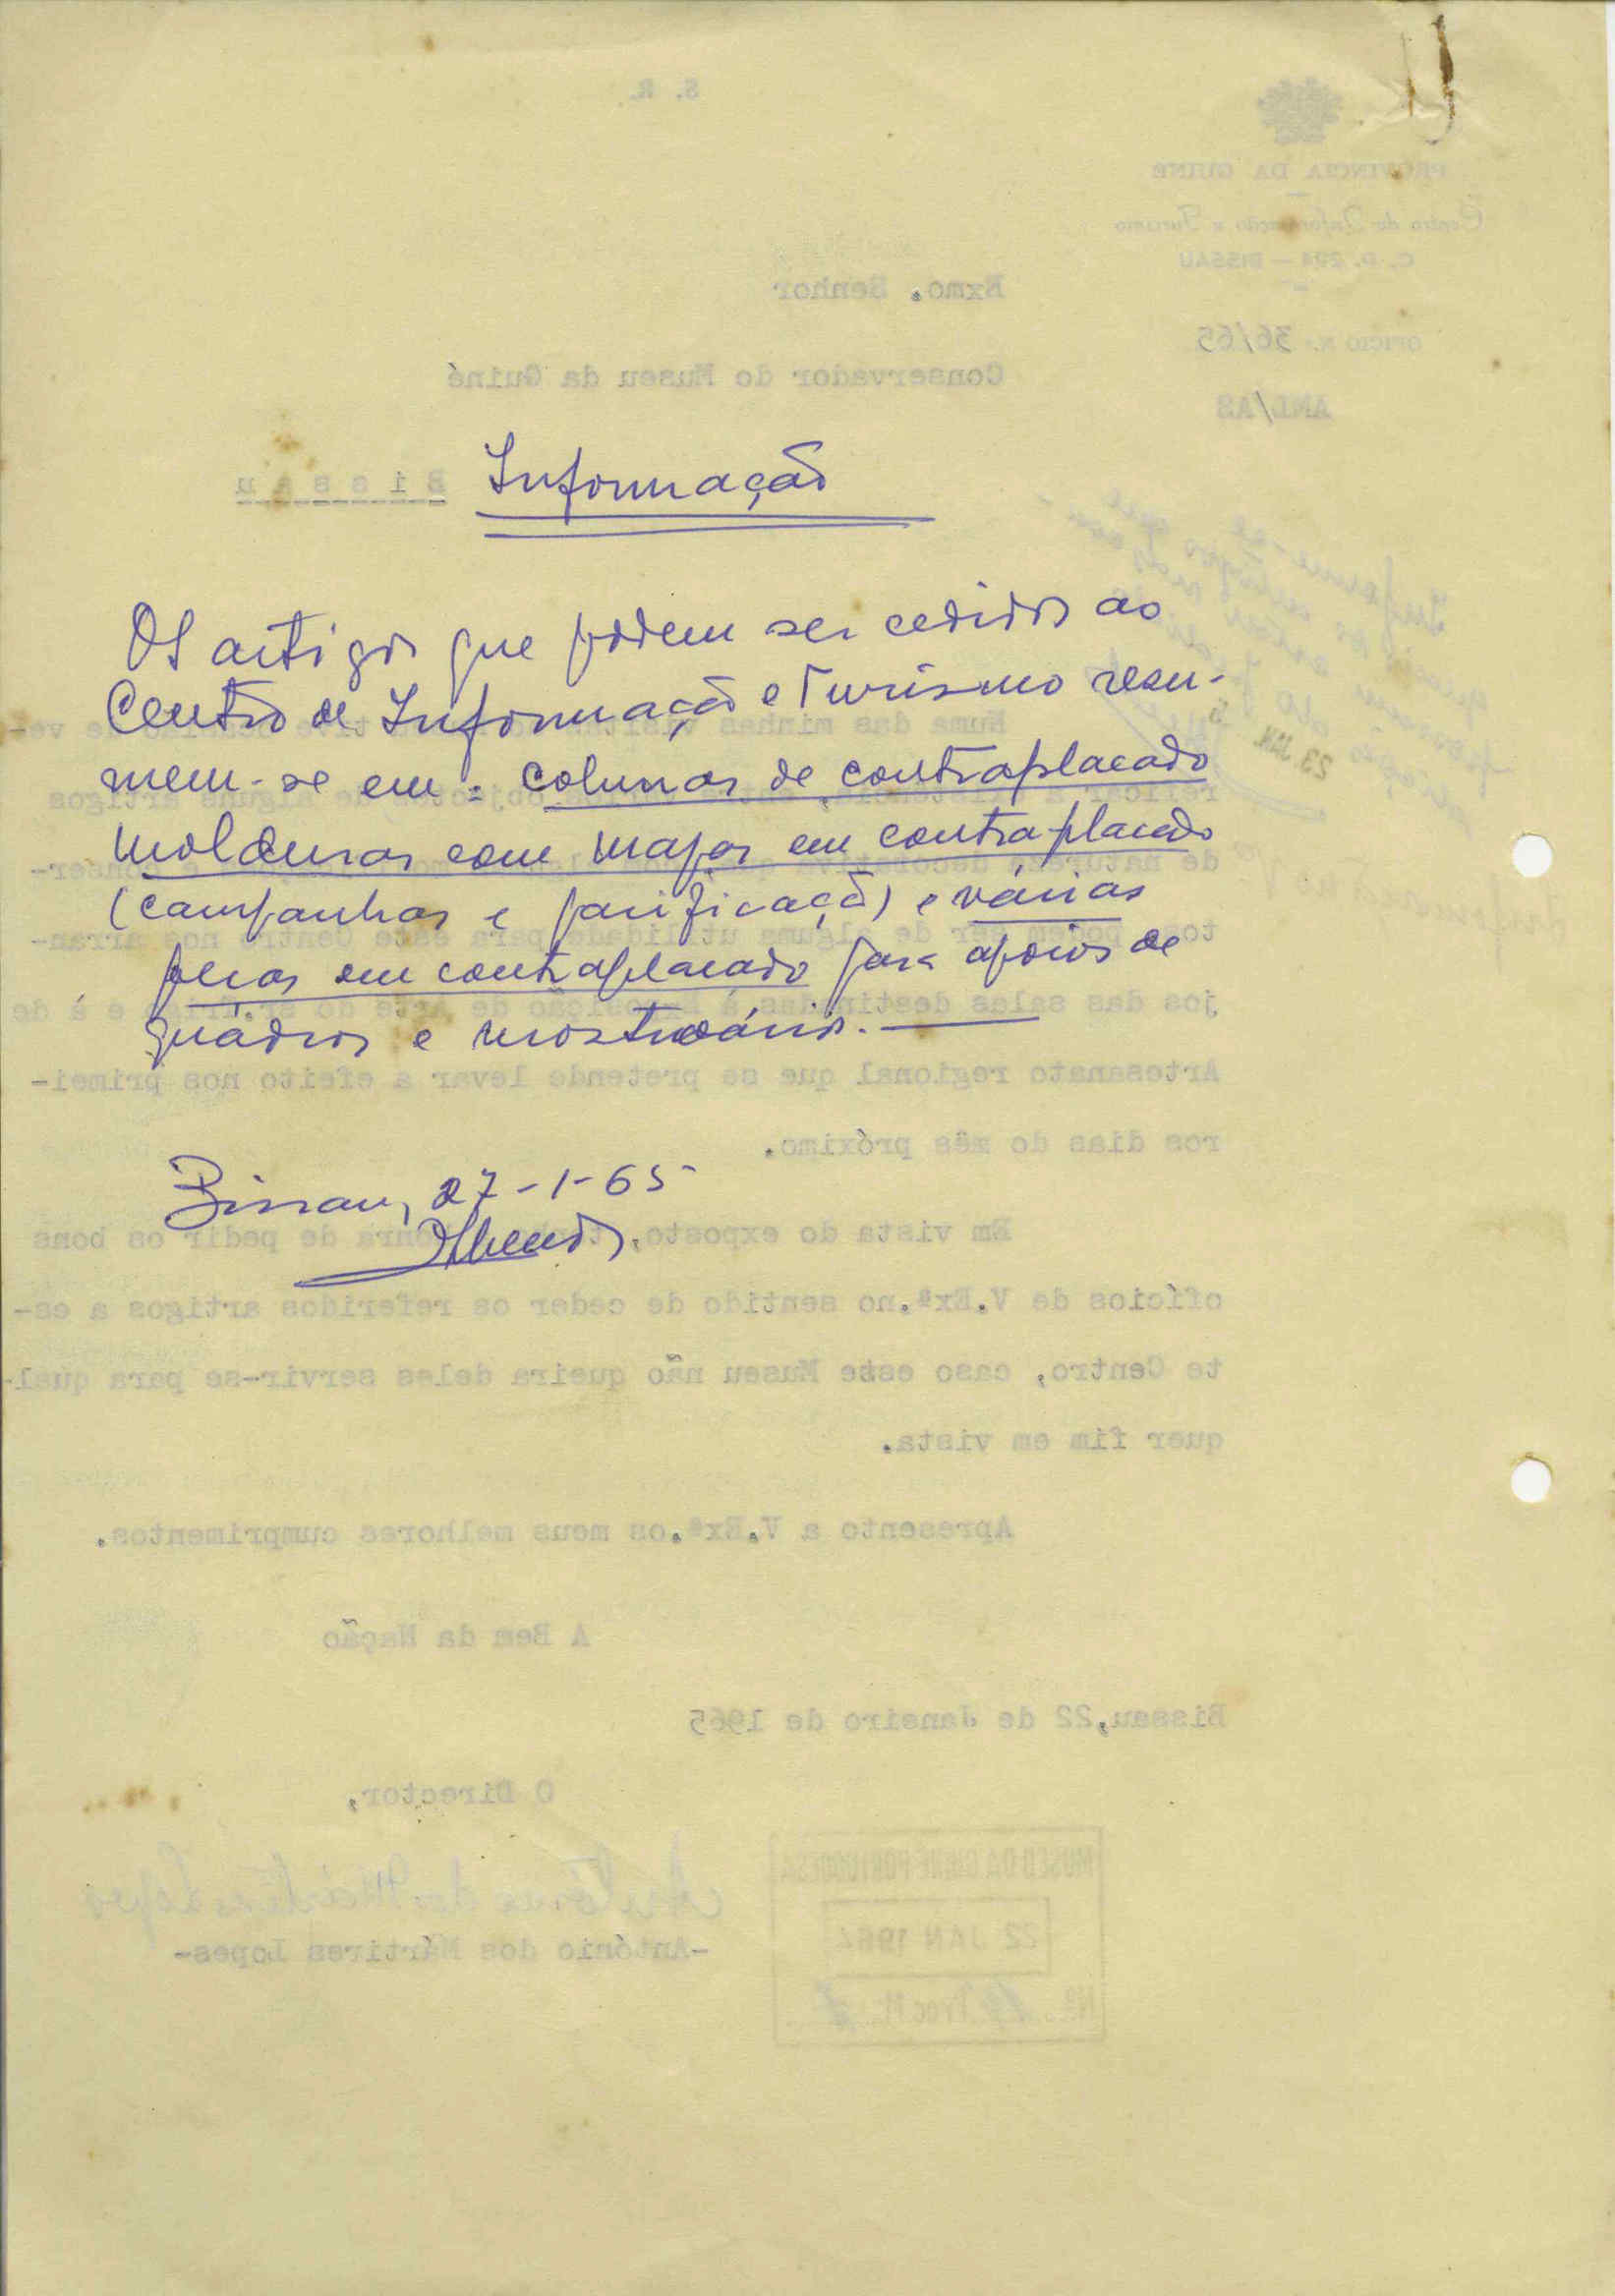 Informação
Os artigos que podem ser cedidos ao
Centro de Informação e Turismo resu-
mem-se em: colunas de contraplacado
molduras com mapas em contraplacado
(campanhas e pacificação) e várias
peças em contraplacado para apoios de
quadros e mostruários.
Bissau, 27-1-65
S. R.
PROVÍNCIA DA GUINÉ
Centro de Informação e Turismo
C. P. 294 — BISSAU
OFICIO N.º 36/65
AML/AS
Exmo. Senhor
Conservador do Museu da Guiné
Bissau
23 JAN.
Numa das minhas visitas de ve-
de alguns artigos
de natureza conser-
tos, podem ser de alguma utilidade para este Centro nos arran-
jos das salas destinadas á Exposição de Arte e á de
Artesanato regional que se pretende levar a efeito nos primei-
ros dias do mês próximo.
Em vista do exposto, de pedir os bons
ofícios de V.Exª.no sentido de ceder os referidos artigos a es-
te Centro, caso esse Museu não queira deles servir-se para qual-
quer fim em vista.
Apresento a V.Exª.os meus melhores cumprimentos.
A Bem da Nação
Bissau,22 de Janeiro de 1965
O Director,
António dos Mártires Lopes
-António dos Mártires Lopes-
MUSEU DA GUINÉ PORTUGUESA
22 JAN 1964
Nº. 19 Proc.